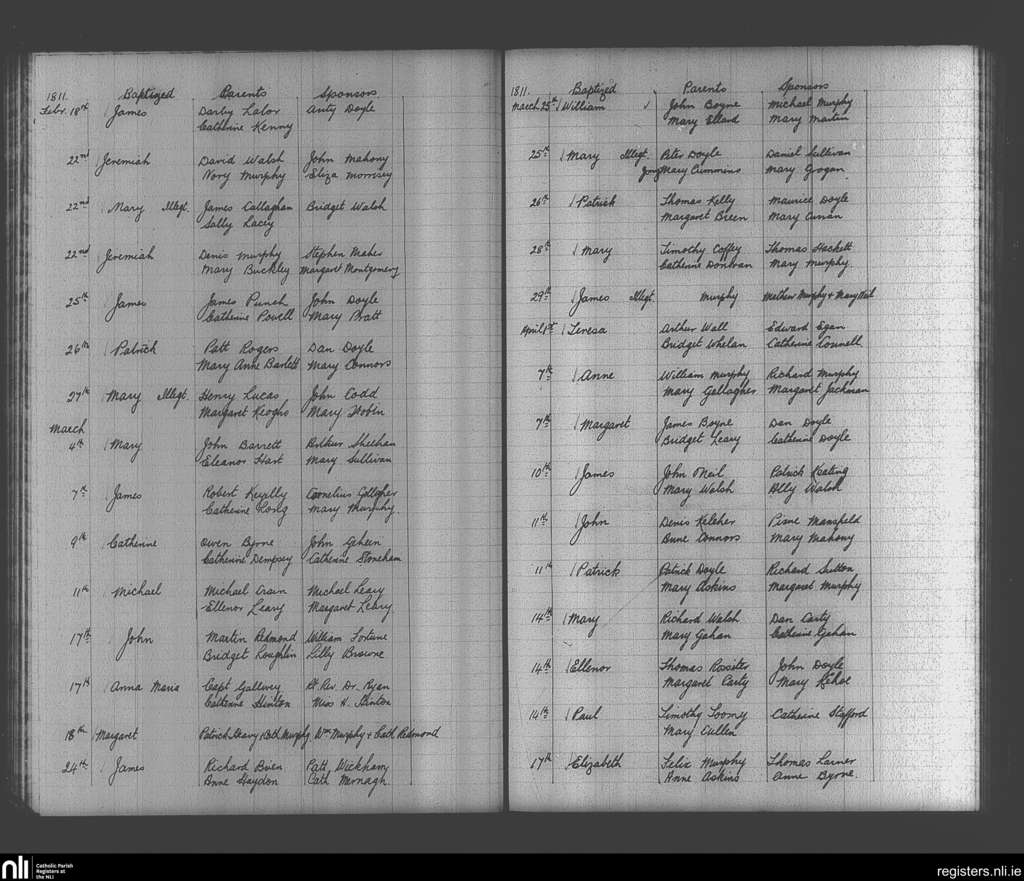 1811. Baptized Parents Sponsors
Febr. 18th James Darby Lalor Anty Doyle
Catherine Kenny
22nd Jeremiah David Walsh John Mahony
Nory Murphy Eliza Morrisey
22nd Mary Illegt. James Callaghan Bridget Walsh
Sally Lacey
22nd Jeremiah Denis Murphy Stephen Maher
Mary Buckley Margaret Montgomery
25th James James Punch John Doyle
Catherine Powell Mary Pratt
26th Patrick Patt Rogers Dan Doyle
Mary Anne Bartlett Mary Connors
27th Mary Illegt. Henry Lucas John Codd
Margaret Keoghs Mary
March
4th Mary John Barrett Sheehan
Eleanor Hart Mary Sullivan
7th James Robert Cornelius Gallagher
Catherine Mary Murphy
9th Catherine Owen Byrne John Gaheen
Catherine Dempsey Catherine Stoneham
11th Michael Michael Crain Michael Leary
Ellenor Leary Margaret Leary
17th John Martin Redmond William Fortune
Bridget Roughlin Lilly Browne
17th Anna Maria Capt Gallwey Rt Rev. Dr. Ryan
Catherine Stinton Miss H. Stinton
18th Margaret Patrick Geary & Cath Murphy Wm Murphy & Cath Redmond
24th James Richard Buen Patt. Wickham
Anne Haydon Cath Murnagh
1811. Baptized Parents Sponsors
March 25th William John Boyne Michael Murphy
Mary Ellard Mary Martin
25th Mary Illegt. Peter Doyle Daniel Sullivan
Mary Cummins Mary Grogan
26th Patrick Thomas Kelly Maurice Doyle
Margaret Breen Mary Curran
28th Mary Timothy Coffey Thomas Hackett
Catherine Donovan Mary Murphy
29th James Illegt. Murphy Mathew Murphy & Mary
April 1st Teresa Arthur Wall Edward Egan
Bridget Whelan Catherine Connell
7th Anne William Murphy Richard Murphy
Mary Gallagher Margaret Jackman
7th Margaret James Boyne Dan Doyle
Bridget Leary Catherine Doyle
10th James John Neil Patrick Keating
Mary Walsh Ally Walsh
11th John Denis Keleher Mansfield
Connors Mary Mahony
11th Patrick Patrick Doyle Richard Sutton
Mary Askins Margaret Murphy
14th Mary Richard Walsh Dan Carty
Mary Gahan Catherine Gahan
14th Ellenor Thomas Rossiter John Doyle
Margaret Carty Mary Kehoe
14th Paul Timothy Toomy Catherine Stafford
Mary Cullen
17th Elizabeth Felix Murphy Thomas Larner
Anne Askins Anne Byrne.
nli Catholic Parish
Registers at
the NLI
registers.nli.ie